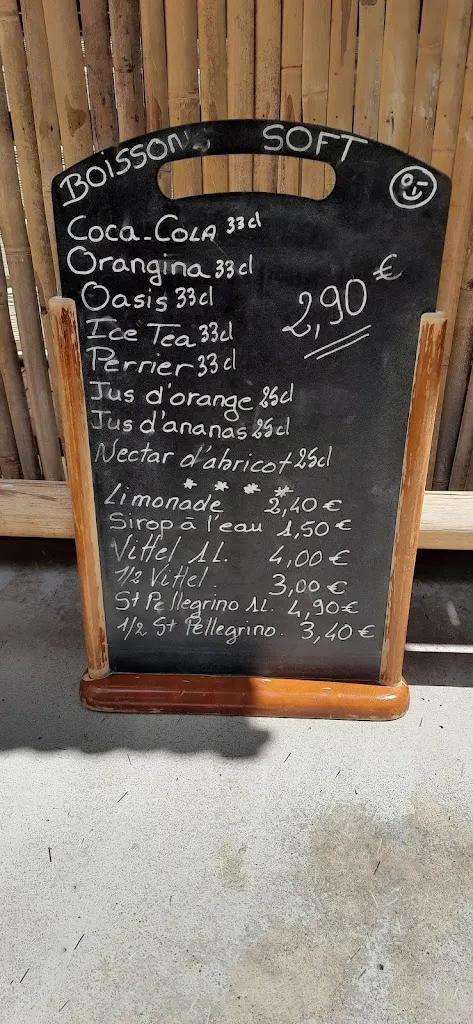 BOISSONS SOFT
Coca-Cola 33cl
Orangina 33cl
Oasis 33cl
2,90 €
Ice Tea 33cl
Perrier 33cl
Jus d'orange 25cl
Jus d'ananas 25cl
Nectar d'abricot 25cl
* * * *
Limonade 2,40 €
Sirop à l'eau 1,50 €
Vittel 1L. 4,00 €
1/2 Vittel. 3,00 €
St Pellegrino 1L. 4,90 €
1/2 St Pellegrino. 3,40 €